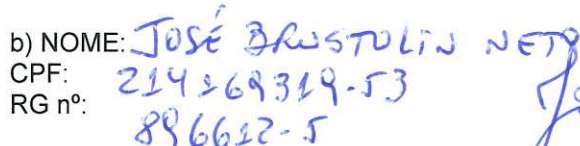 b) NOME: JOSÉ BRUSTOLIN NETO
CPF: 214169319-53
RG nº: 896612-5